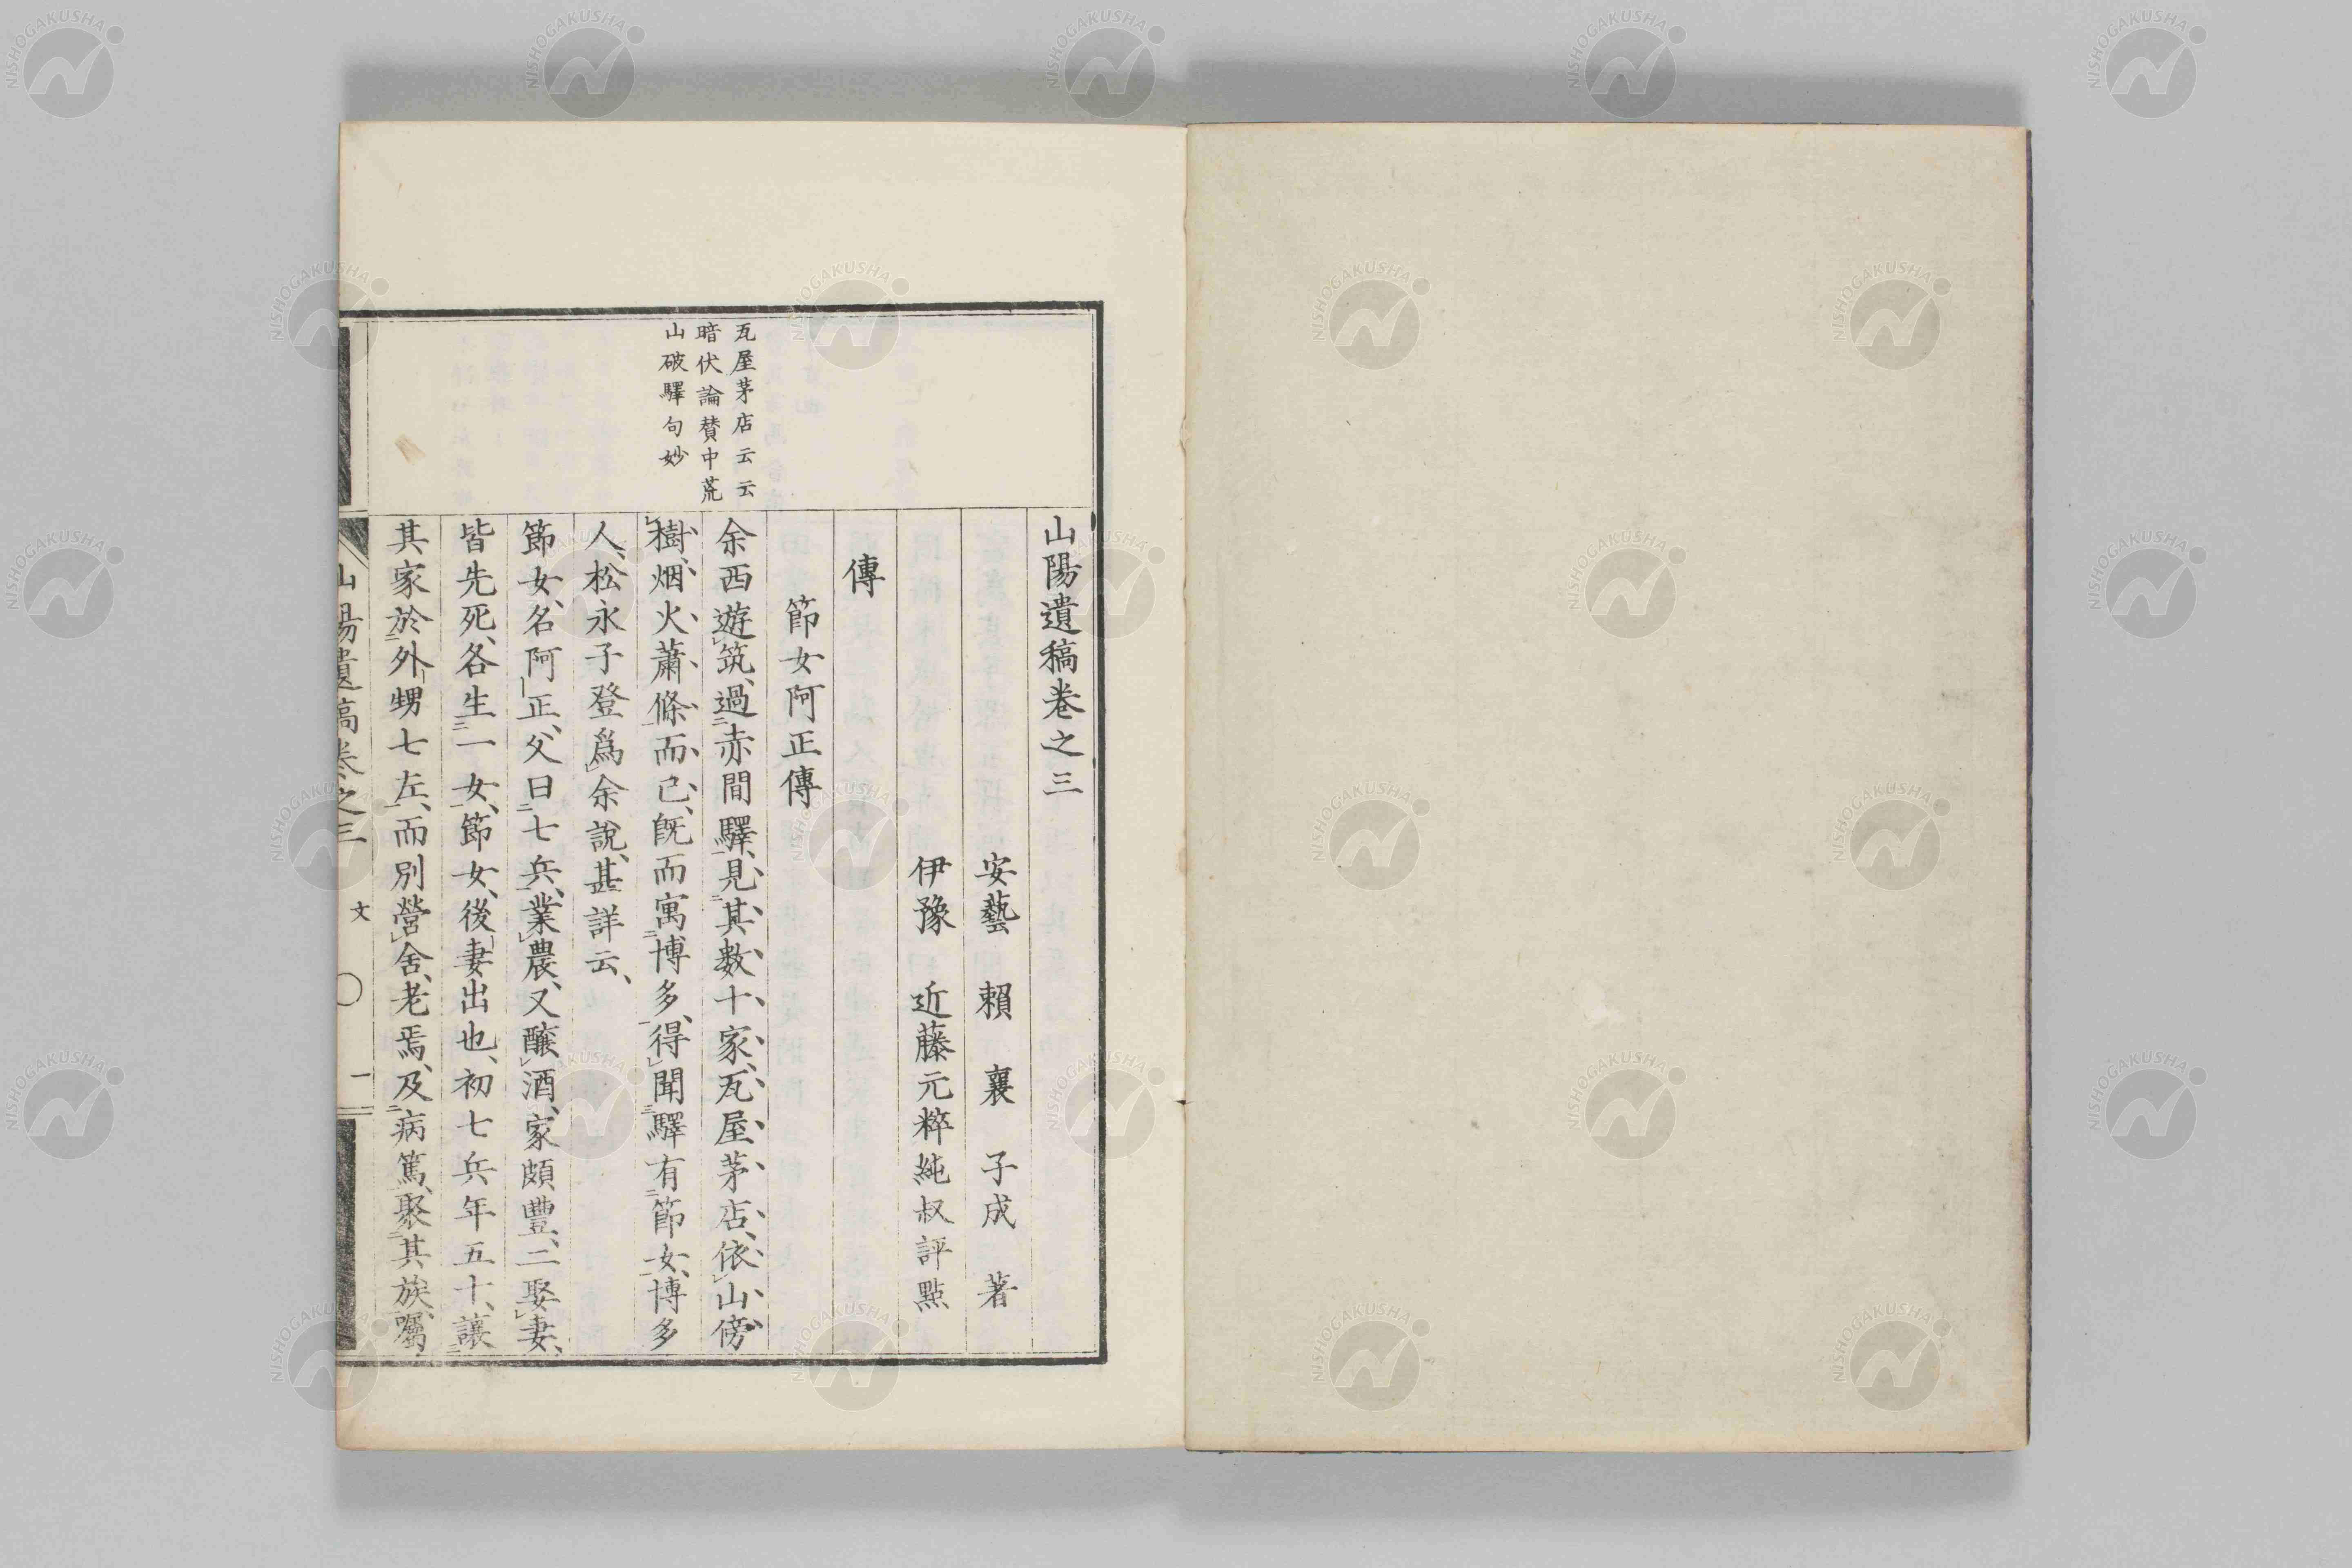 山陽遺稿卷之三
安藝 賴 襄 子成 著
伊豫 近藤元粹純叔評點
傳
節女阿正傳
瓦屋茅店云云
暗伏論賛中荒
山破驛句妙
余西遊筑、過赤間驛、見其數十家、瓦屋茅店、依山傍
樹、烟火蕭條而已、既而寓博多、得聞驛有節女、博多
人、松永子登爲余說、甚詳云、
節女、名阿正、父曰七兵、業農、又釀酒、家頗豐、二娶妻、
皆先死、各生一女、節女、後妻出也、初七兵年五十、讓
其家於外甥七左、而別營舍、老焉、及病篤、聚其族、囑
山陽遺稿卷之三 文 一
NISHOGAKUSHA